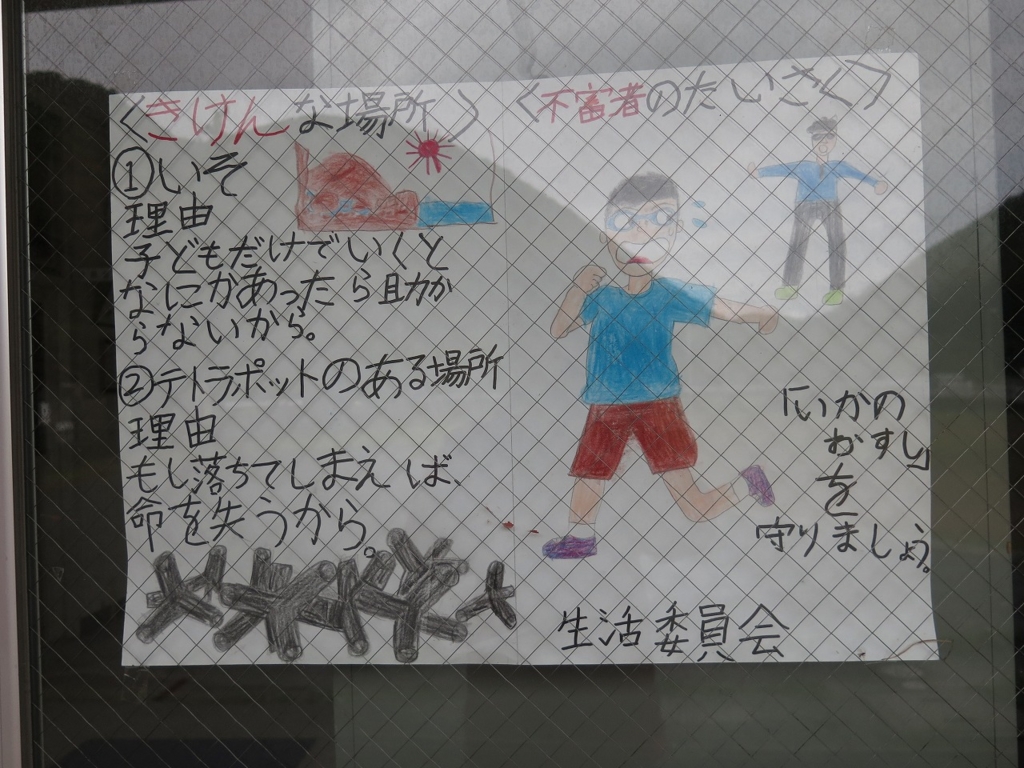 〈きけんな場所〉
①いそ
理由
子どもだけでいくと
なにかあったら助か
らないから。
②テトラポットのある場所
理由
もし落ちてしまえば、
命を失うから。
〈不審者のたいさく〉
「いかの
おすし」
を
守りましょう。
生活委員会